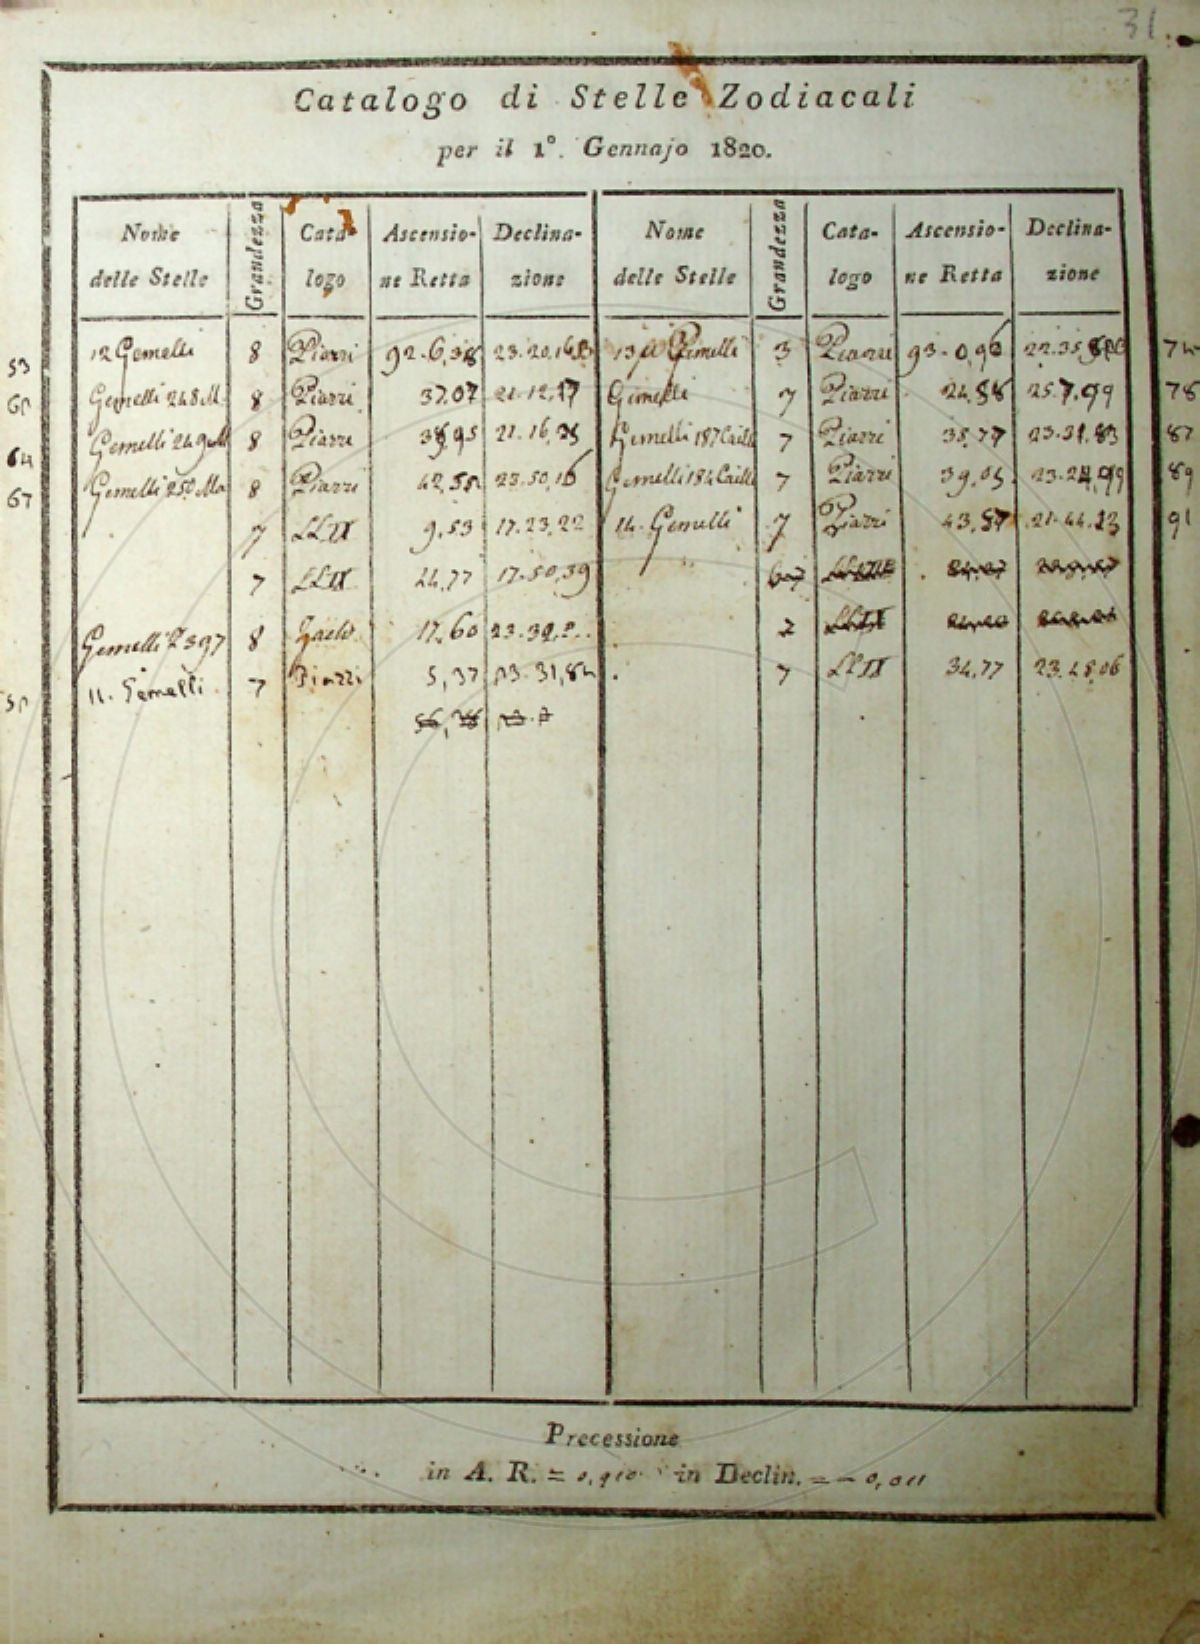 31.
Catalogo di Stelle Zodiacali
per il 1°. Gennajo 1820.
Nome delle Stelle Grandezza Catalogo Ascensione Retta Declinazione Nome delle Stelle Grandezza Catalogo Ascensione Retta Declinazione
53 12 Gemelli 8 Piazzi 92.6, 23.20, 13 μ Gemelli 3 Piazzi 93.0,96 22.35,
Gemelli 248 M. 8 Piazzi 37,07 21.12,17 Gemelli 7 Piazzi 24,58 25.7,99 78
64 Gemelli 249 M 8 Piazzi 38,95 21.16,35 Gemelli 187 Caille 7 Piazzi 38,77 23.31,83 87
67 Gemelli 250 Ma 8 Piazzi 42,58 23.50,16 Gemelli 184 Caille 7 Piazzi 39,05 23.24,99 89
7 LL IX 9,53 17.23,22 14. Gemelli 7 Piazzi 43,57 21.44,23 91
7 LL IX 44,77 17.50,39
Gemelli 397 8 Zach 17,60 23.32,2..
11. Gemelli 7 Piazzi 5,37 23.31,82 7 LL IX 34,77 23.48,06
Precessione
in A. R. = 0,910 in Declin. = – 0,011